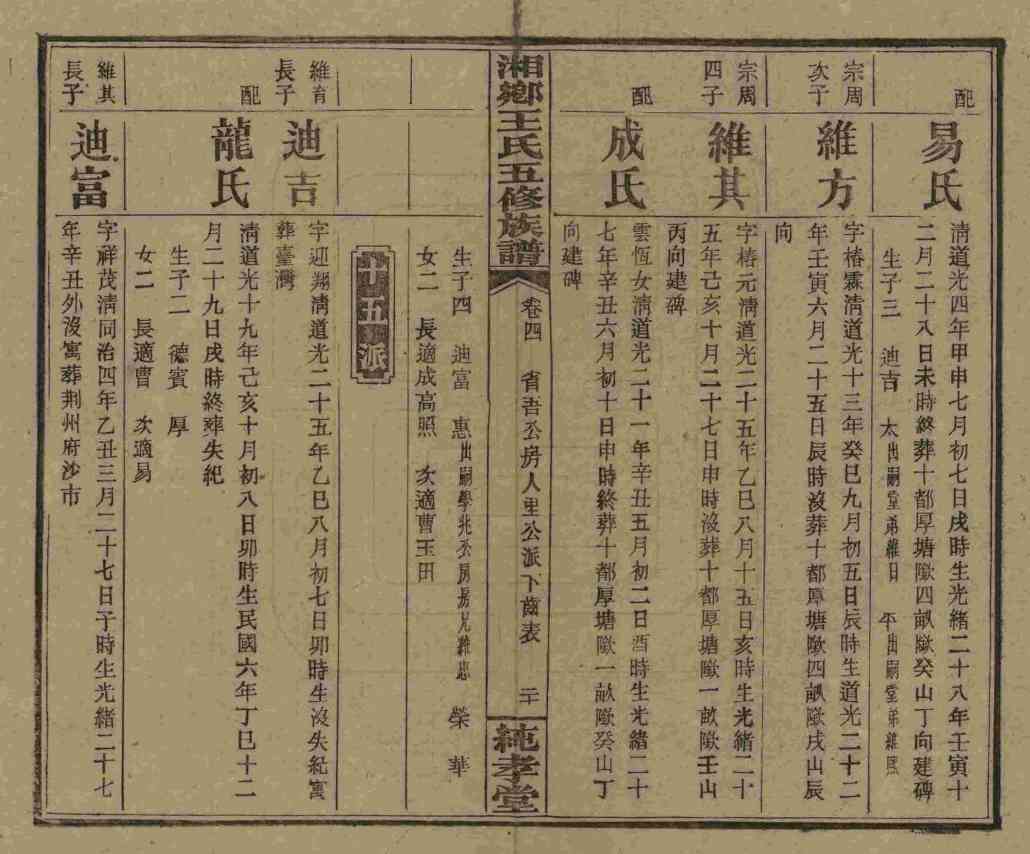 配
易氏
淸道光四年甲申七月初七日戌時生光緒二十八年壬寅十
二月二十八日未時終葬十都厚塘歐四畝歐癸山丁向建碑
生子三 迪吉 太出嗣堂弟維日 平出嗣堂弟維熙
宗周
次子
維方
字椿霖淸道光十三年癸巳九月初五日辰時生道光二十二
年壬寅六月二十五日辰時沒葬十都厚塘歐四畝歐戌山辰
向
宗周
四子
維其
字椿元淸道光二十五年乙巳八月十五日亥時生光緒二十
五年己亥十月二十七日申時沒葬十都厚塘歐一畝歐壬山
丙向建碑
配
成氏
雲恆女淸道光二十一年辛丑五月初二日酉時生光緒二十
七年辛丑六月初十日申時終葬十都厚塘歐一畝歐癸山丁
向建碑
湘鄉王氏五修族譜
卷四 省吾公房人里公派下齒表 二十
純孝堂
生子四 迪富 惠出嗣學兆公房房兄維忠 榮 華
女二 長適成高照 次適曹玉田
十五派
維育
長子
迪吉
字迎翔淸道光二十五年乙巳八月初七日卯時生沒失紀寓
葬臺灣
配
龍氏
淸道光十九年己亥十月初八日卯時生民國六年丁巳十二
月二十九日戌時終葬失紀
生子二 德賓 厚
女二 長適曹 次適易
維其
長子
迪富
字祥茂淸同治四年乙丑三月二十七日子時生光緒二十七
年辛丑外沒寓葬荆州府沙市